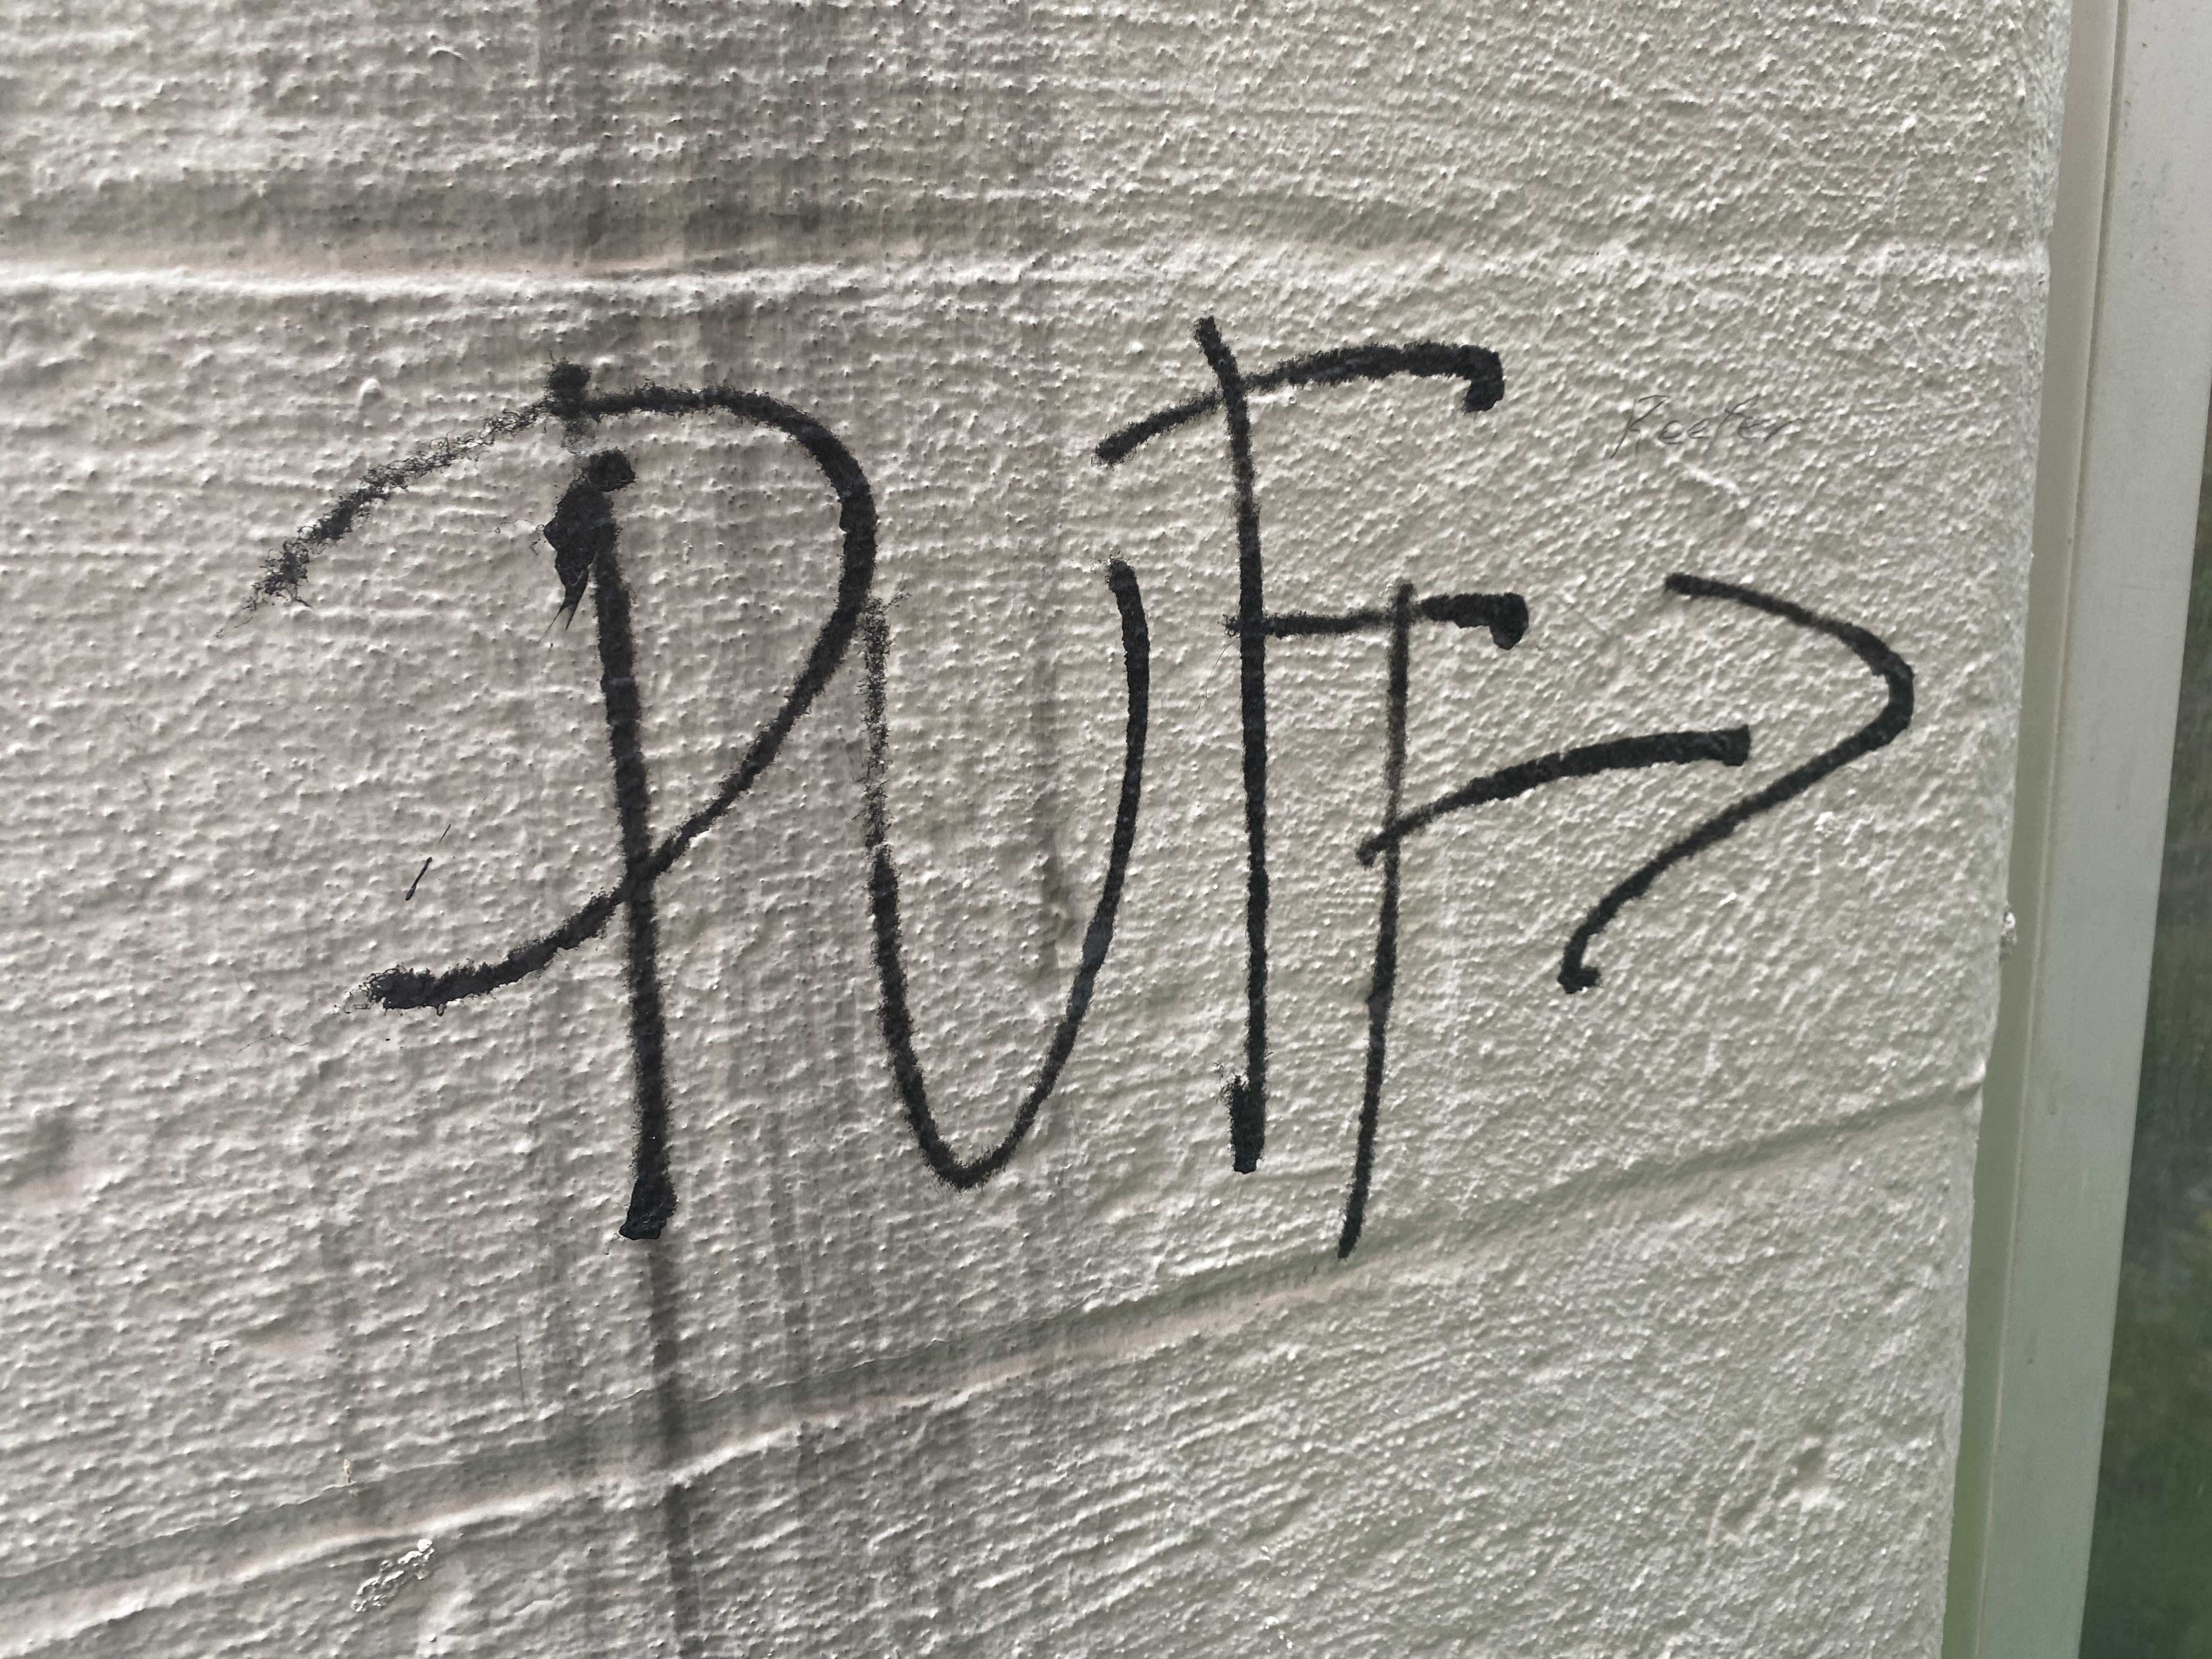 PUFF
Reefer